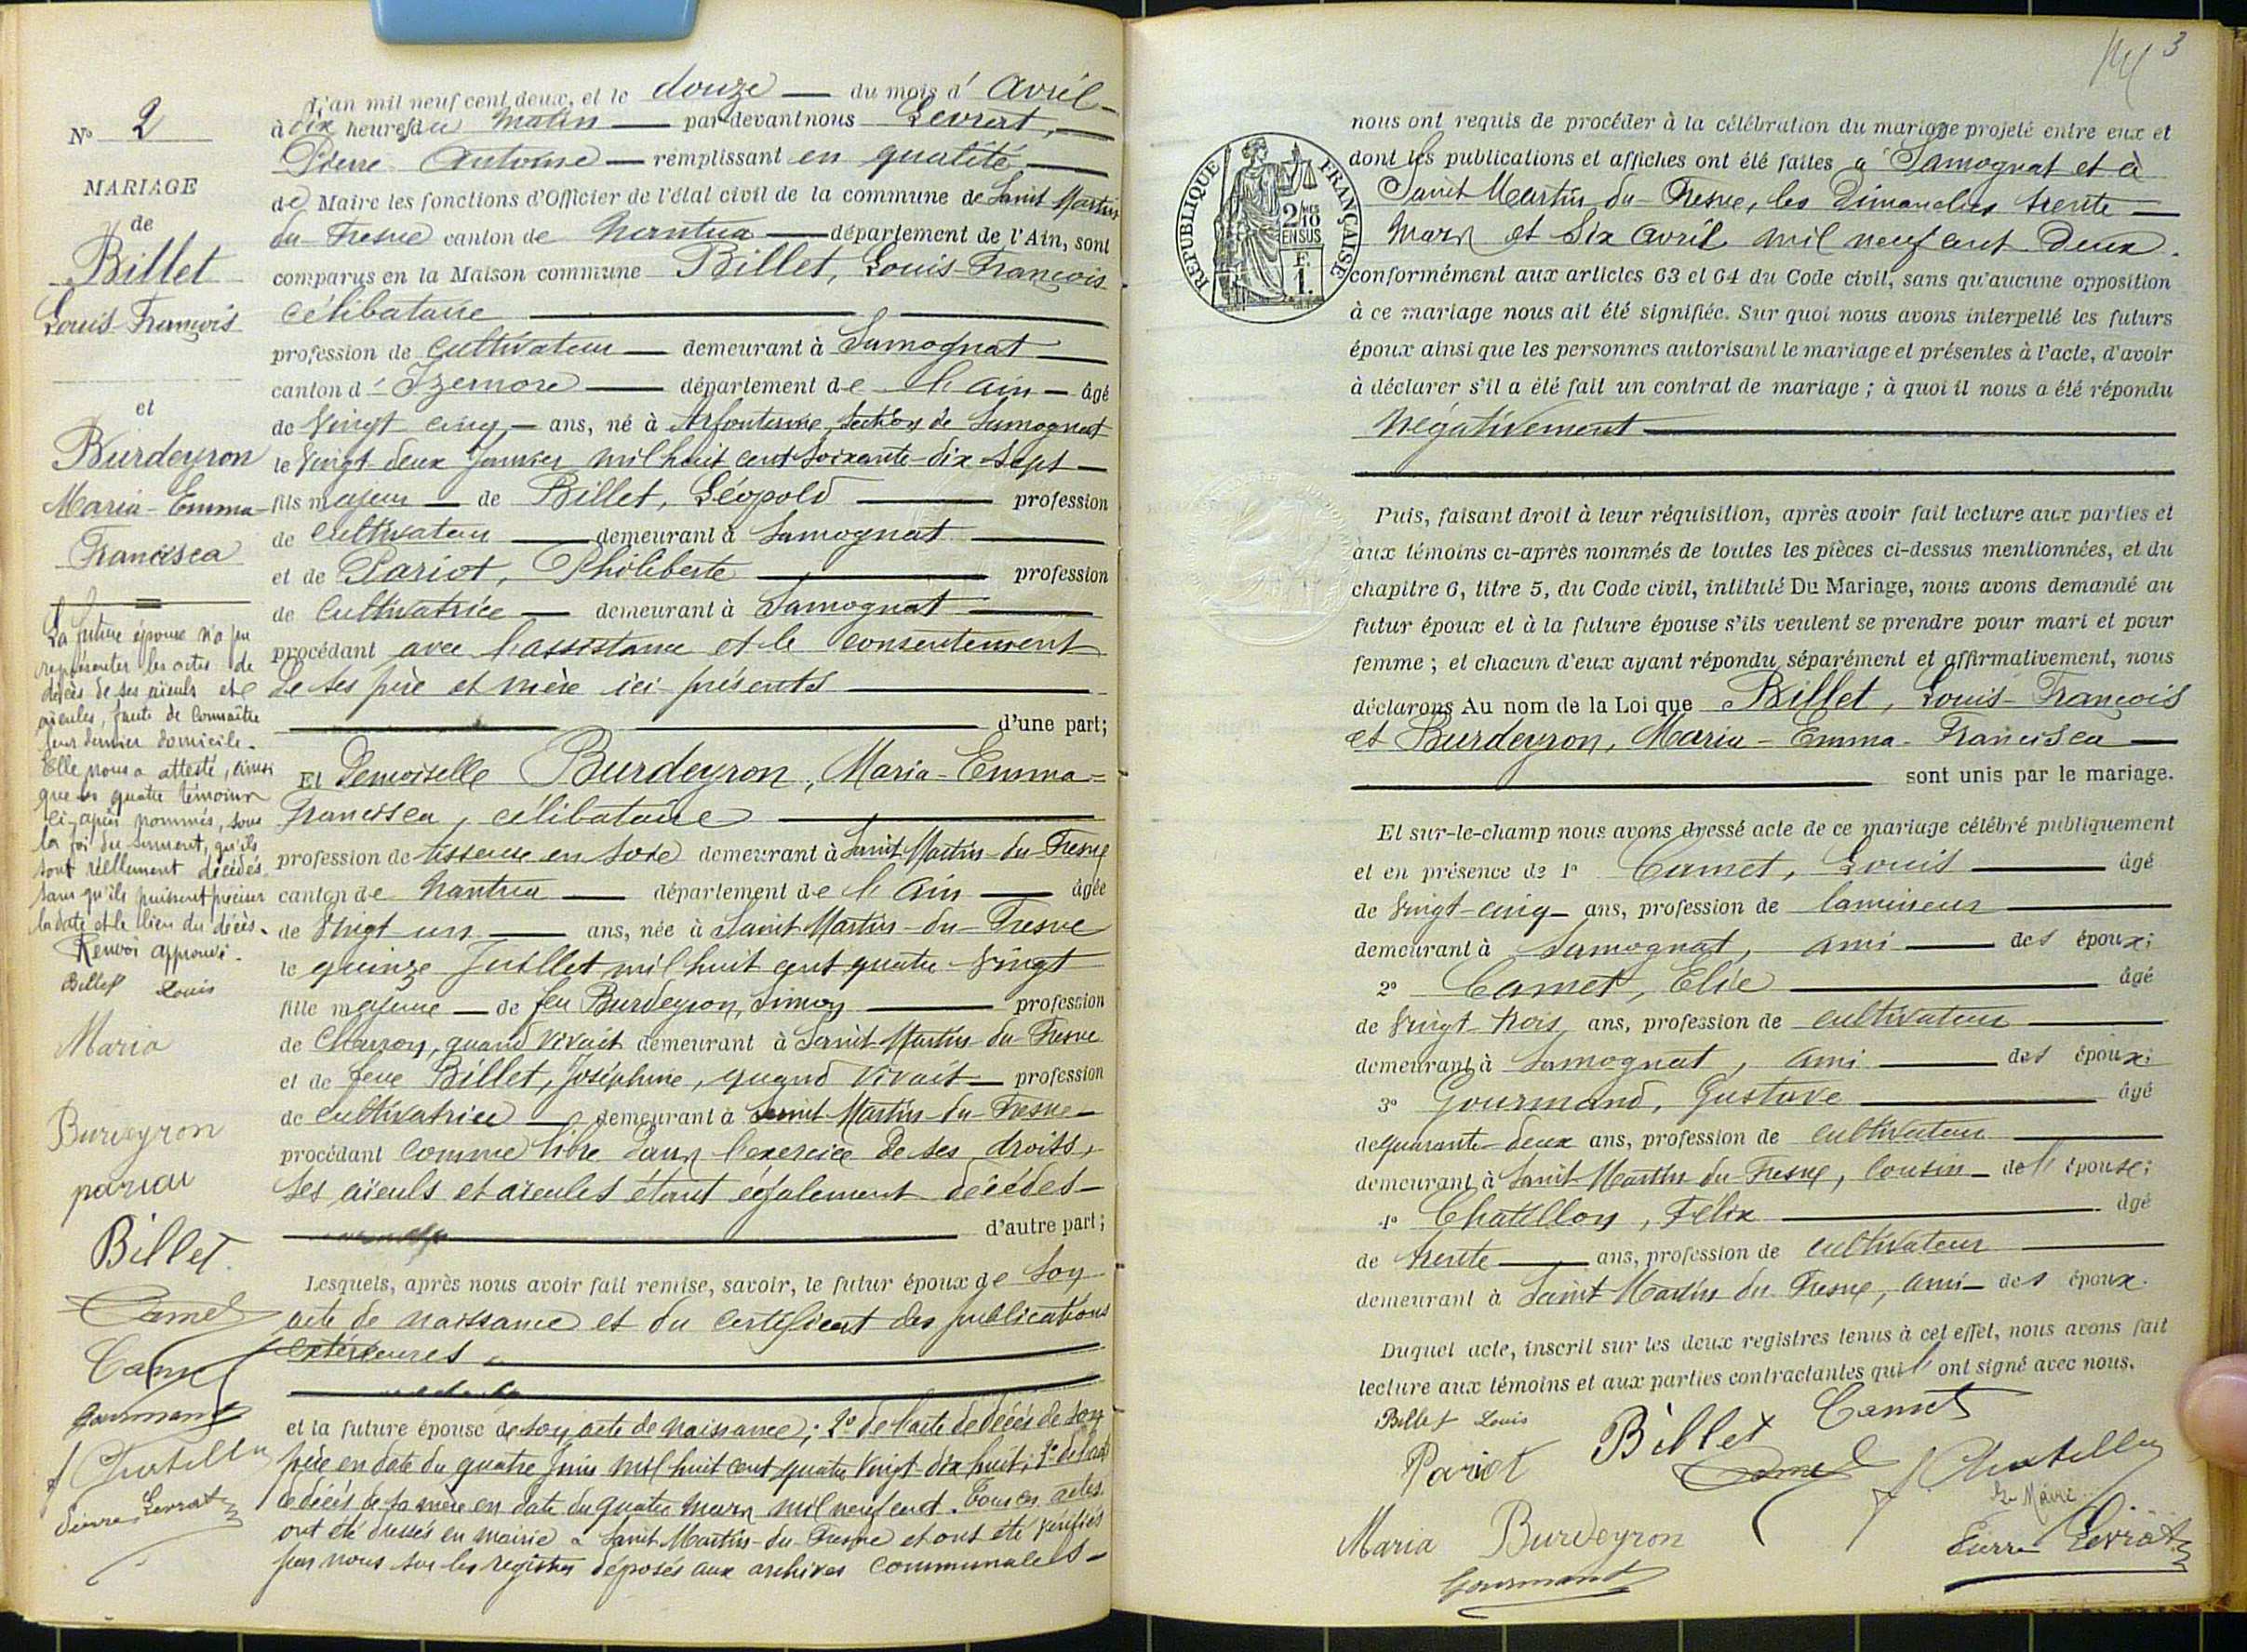 N° 2
MARIAGE
de
Billet
Louis-François
et
Burdeyron
Maria-Emma-
Francisca
La future épouse n'a pu
représenter les actes de
décès de ses aïeuls et
aïeules, faute de connaître
leur dernier domicile.
Elle nous a attesté, ainsi
que les quatre témoins
ci-après nommés, sous
la foi du serment, qu'ils
sont réellement décédés
sans qu'ils puissent préciser
la date et le lieu du décès.
Renvoi approuvé.
Billet Louis
Maria
Burdeyron
pariot
Billet
Camet
Camet
Gourmand
f Chatillon
Pierre Levrat
L'an mil neuf cent deux, et le douze du mois d'Avril
à dix heures du matin par devant nous Levrat,
Pierre Antoine remplissant en qualité
de Maire les fonctions d'Officier de l'état civil de la commune de Saint Martin
du Fresne canton de Nantua département de l'Ain, sont
comparus en la Maison commune Billet, Louis-François
célibataire
profession de cultivateur demeurant à Samognat
canton d'Izernore département de l'Ain âgé
de vingt cinq ans, né à Arfontaine, section de Samognat
le vingt deux Janvier mil huit cent soixante-dix-sept
fils majeur de Billet, Léopold profession
de cultivateur demeurant à Samognat
et de Pariot, Philiberte profession
de cultivatrice demeurant à Samognat
procédant avec l'assistance et le consentement
de ses père et mère ici présents
d'une part;
Et Demoiselle Burdeyron, Maria-Emma=
Francisca, célibataire
profession de tisseuse en soie demeurant à Saint Martin-du-Fresne
canton de Nantua département de l'Ain âgée
de vingt un ans, née à Saint-Martin-du-Fresne
le quinze Juillet mil huit cent quatre-vingt
fille majeure de feu Burdeyron, Simon profession
de Charron, quand vivait demeurant à Saint-Martin-du-Fresne
et de feue Billet, Joséphine, quand vivait profession
de cultivatrice demeurant à Saint-Martin-du-Fresne
procédant comme libre dans l'exercice de ses droits,
ses aïeuls et aïeules étant également décédés
d'autre part;
Lesquels, après nous avoir fait remise, savoir, le futur époux de son
acte de naissance et du certificat des publications
extérieures
et la future épouse de son acte de naissance; 2° de l'acte de décès de son
père en date du quatre Juin mil huit cent quatre vingt-dix huit; 3° de l'acte
de décès de sa mère en date du quatre mars mil neuf cent. Tous ces actes
ont été dressés en mairie à Saint-Martin-du-Fresne et ont été vérifiés
par nous sur les registres déposés aux archives communales
3
RÉPUBLIQUE FRANÇAISE
2/10
EN SUS
F.
1.
nous ont requis de procéder à la célébration du mariage projeté entre eux et
dont les publications et affiches ont été faites à Samognat et à
Saint Martin-du-Fresne, les Dimanches trente
Mars et Six avril mil neuf cent deux.
conformément aux articles 63 et 64 du Code civil, sans qu'aucune opposition
à ce mariage nous ait été signifiée. Sur quoi nous avons interpellé les futurs
époux ainsi que les personnes autorisant le mariage et présentes à l'acte, d'avoir
à déclarer s'il a été fait un contrat de mariage ; à quoi il nous a été répondu
Négativement
Puis, faisant droit à leur réquisition, après avoir fait lecture aux parties et
aux témoins ci-après nommés de toutes les pièces ci-dessus mentionnées, et du
chapitre 6, titre 5, du Code civil, intitulé Du Mariage, nous avons demandé au
futur époux et à la future épouse s'ils veulent se prendre pour mari et pour
femme ; et chacun d'eux ayant répondu séparément et affirmativement, nous
déclarons Au nom de la Loi que Billet, Louis-François
et Burdeyron, Maria-Emma-Francisca
sont unis par le mariage.
Et sur-le-champ nous avons dressé acte de ce mariage célébré publiquement
et en présence de 1° Camet, Louis âgé
de vingt-cinq ans, profession de lamineur
demeurant à Samognat, ami des époux;
2° Camet, Elie âgé
de vingt-trois ans, profession de cultivateur
demeurant à Samognat, ami des époux;
3° Gourmand, Gustave âgé
de quarante-deux ans, profession de cultivateur
demeurant à Saint-Martin-du-Fresne, cousin de l'épouse;
4° Chatillon, Félix âgé
de trente ans, profession de cultivateur
demeurant à Saint Martin du Fresne, ami des époux.
Duquel acte, inscrit sur les deux registres tenus à cet effet, nous avons fait
lecture aux témoins et aux parties contractantes qui l'ont signé avec nous.
Billet Louis
Billet
Camet
Pariot
Camet
f Chatillon
Le Maire
Maria Burdeyron
Pierre Levrat
Gourmand